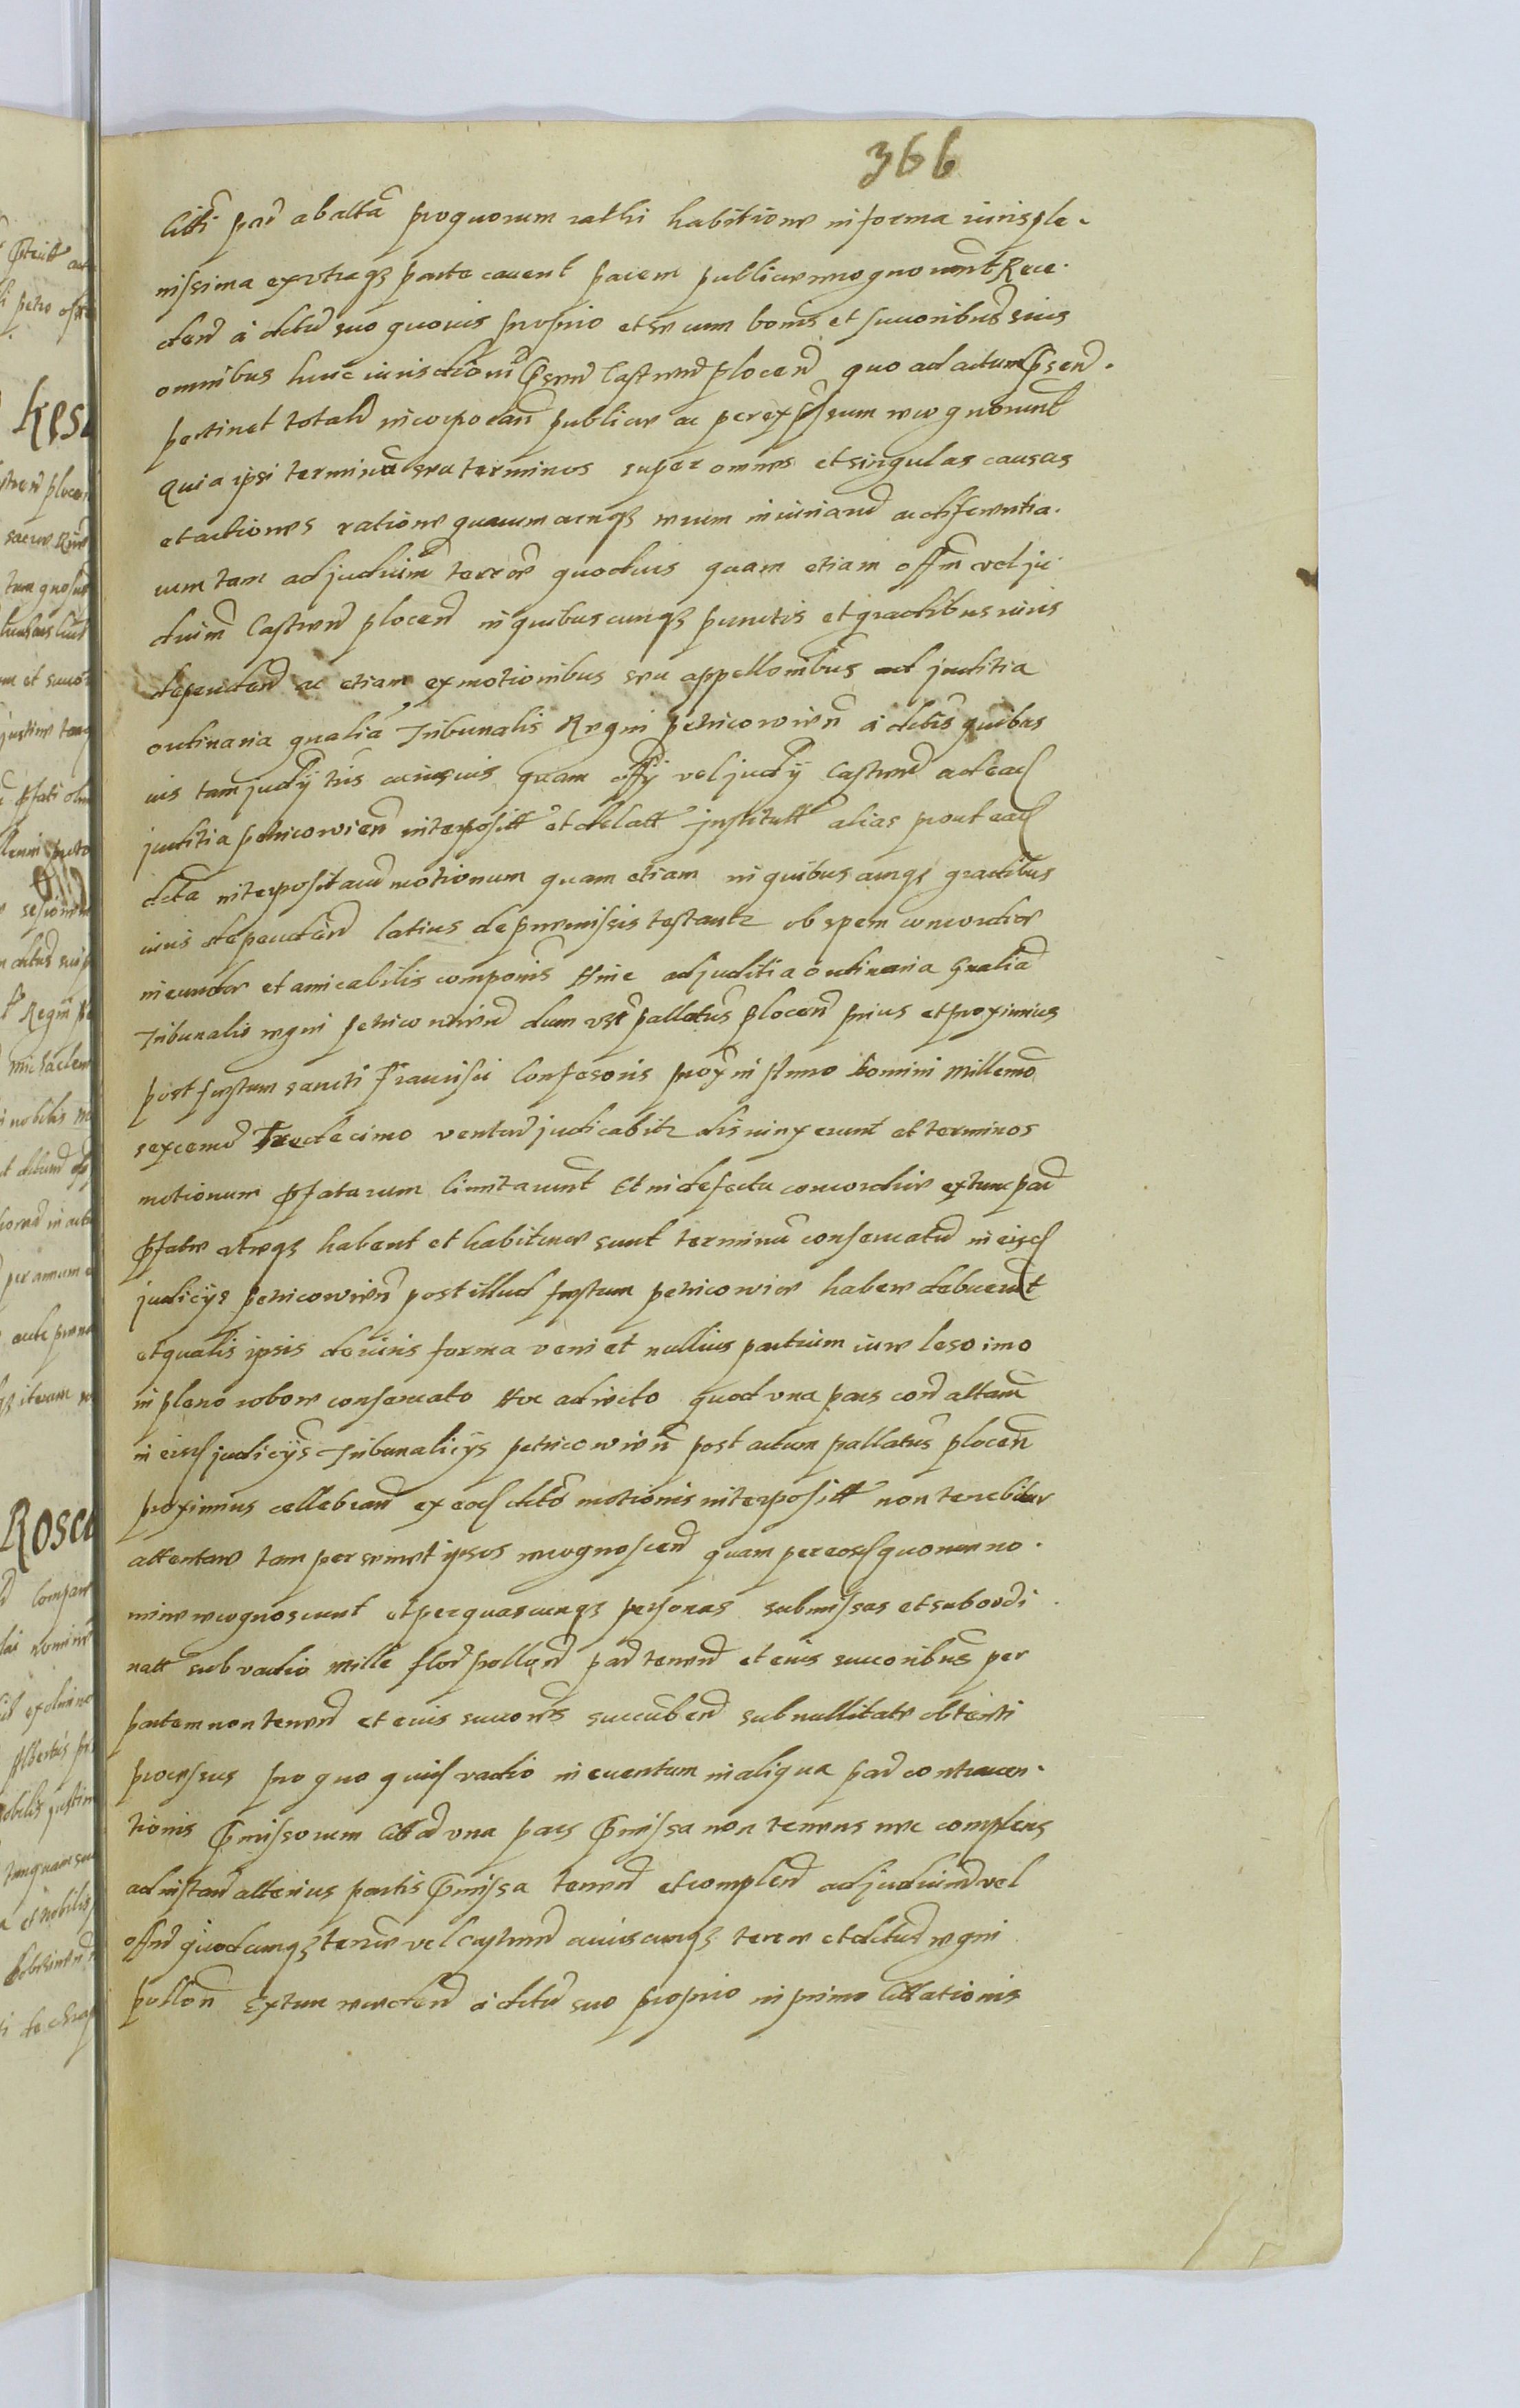 366
par ab altera pro quorum rathi habitione in forma iuris ple-
nissima ex utraque parte cavent pacem publice recognoverunt Rece-
den a distr suo quovis proprio et se cum bonis et succoribus suis
omnibus huic iurisdictioni Castren Plocen quo ad actum pñsen
pertinet totalr incorporan publice ac per expressum recognoverunt
Quia ipsi terminū seu terminos super omnes et singulas causas
et actiones ratione quarumcunq rerum iniuriarū ac differentia-
rum tam ad judicium terrē quodvis quam etiam offm vel ju-
dicium Castren plocen in quibuscunq punctis et gradibus iuris
dependen ac etiam ex motionibus seu appellonibus ad juditia
ordinaria gnalia Tribunalis Regni petricovien a quibus
vis tam judij tris cuiusvis quam offij vel judij Castren ad ead
juditia petricovien interposit et delatt institutt alias prout ead
interpositarū motionum quam etiam in quibuscunq gradibus
iuris dependen latius de praemissis testantr ob spem concordiae
ineundae et amicabilis componis Hinc ad juditia ordinaria Gnalia
Tribunalis regni petricovien dum pallatus plocen prius et proximius
post festum sancti Francisci Confesoris prox in Anno Domini Millemo
sexcemo Tredecimo ventur judicabitr disiunxerunt et terminos
motionum pfatarum limitarunt Et in defectu concordiae extunc par
pfatae utreq habent et habiturae sunt terminū conservatū in eisd
judicijs petricovien post illud festum petricoviae habere debuerut
et qualis ipsis de iuris forma venit et nullius partium iure leso imo
in pleno robore conservato Hoc adiecto quod una pars con altam
in eisd judicijs Tribunalicijs petricovien post actum pallatus plocen
proximius cellebran ex ead motionis interposit non tenebitur
attentare tam per semet ipsos recognoscen quam per eosd quorum no-
mine recognoscunt et per quascunq personas submissas et subordi-
natt sub vadio Mille flor pollon par tenen et eius succoribus per
partem non tenen et eius succores succuben sub nullitate obtenti
processus pro quo quid vadio in eventum in aliqua par contraven-
tionis pmissorum una pars pmissa non tenens nec complens
ad instan alterius partis pmissa tenen et complen ad judicium vel
offm quodcunq terre vel Castren cuiuscunq terre et distr regni
pollon Extunc receden a distr suo proprio in primo Cittationis